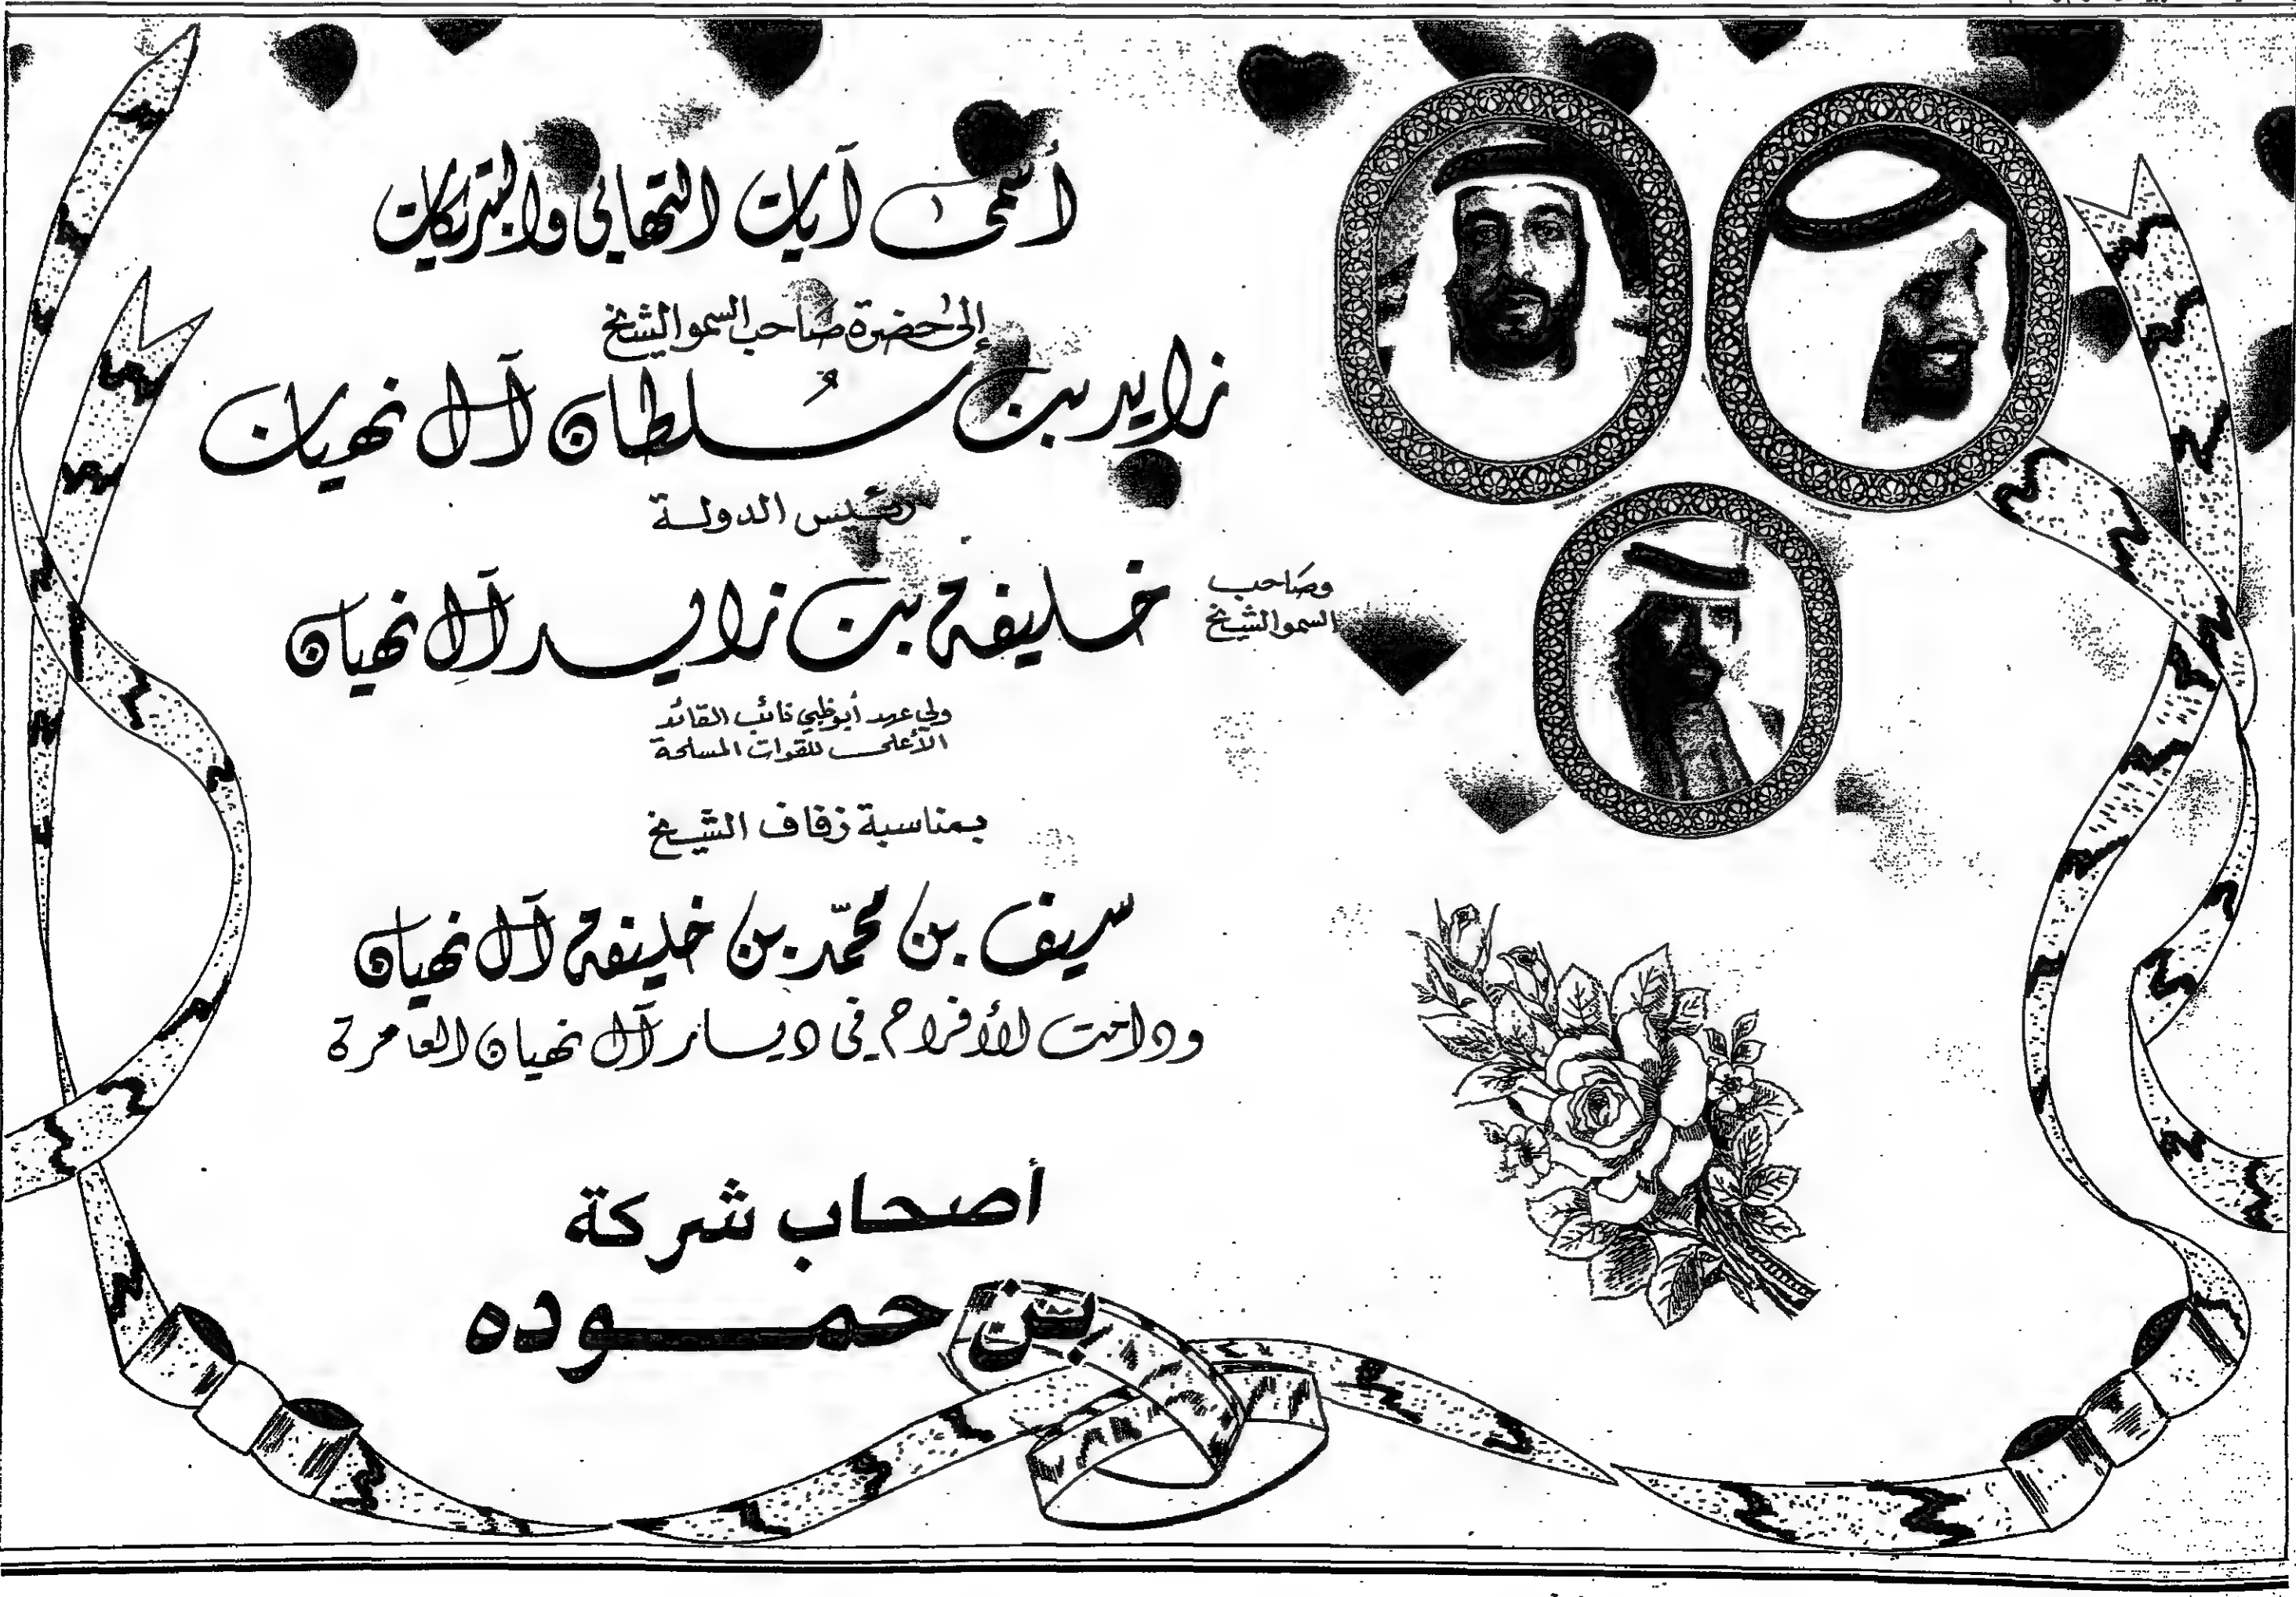 أسمى آيات التهاني والتبريكات
إلى حضرة صاحب السمو الشيخ
زايد بن سلطان آل نهيان
رئيس الدولة
وصاحب
السمو الشيخ
خليفة بن زايد آل نهيان
ولي عهد أبوظبي نائب القائد
الأعلى للقوات المسلحة
بمناسبة زفاف الشيخ
سيف بن محمّد بن خليفة آل نهيان
ودامت الأفراح في ديار آل نهيان العامرة
أصحاب شركة
بن حمــوده